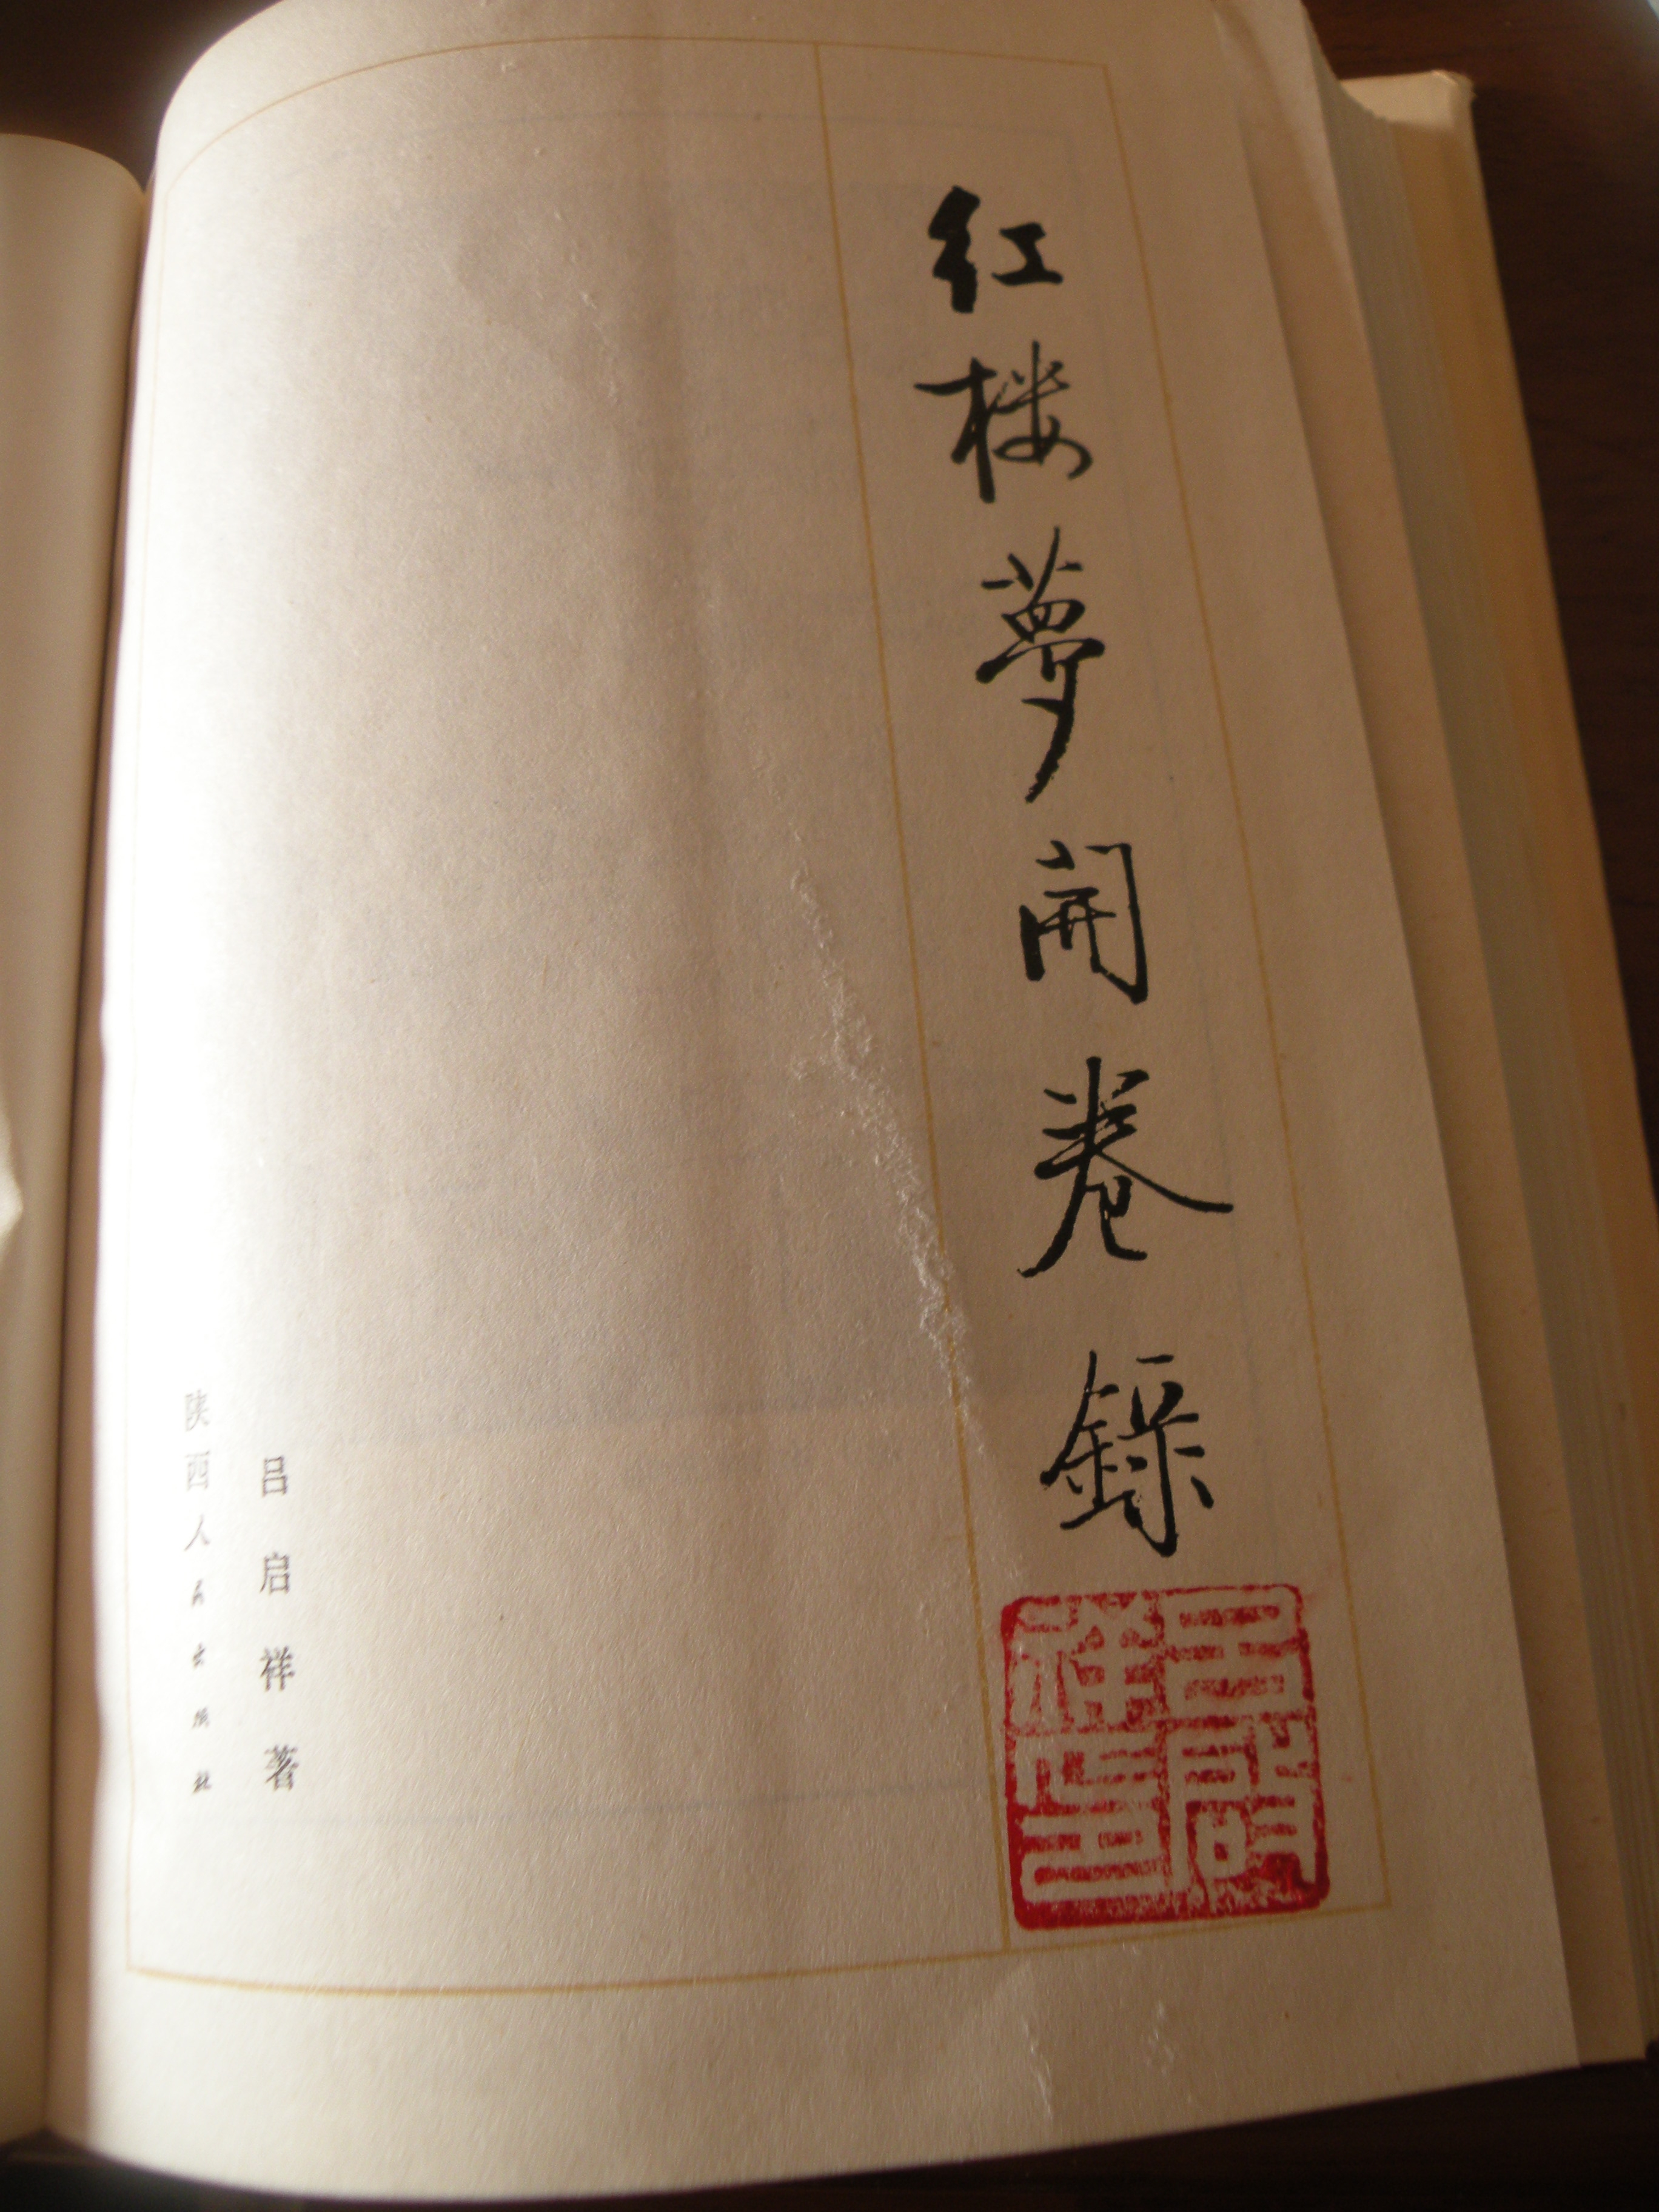 红楼夢開卷録
吕启祥著
陕西人民出版社
吕啟
祥印